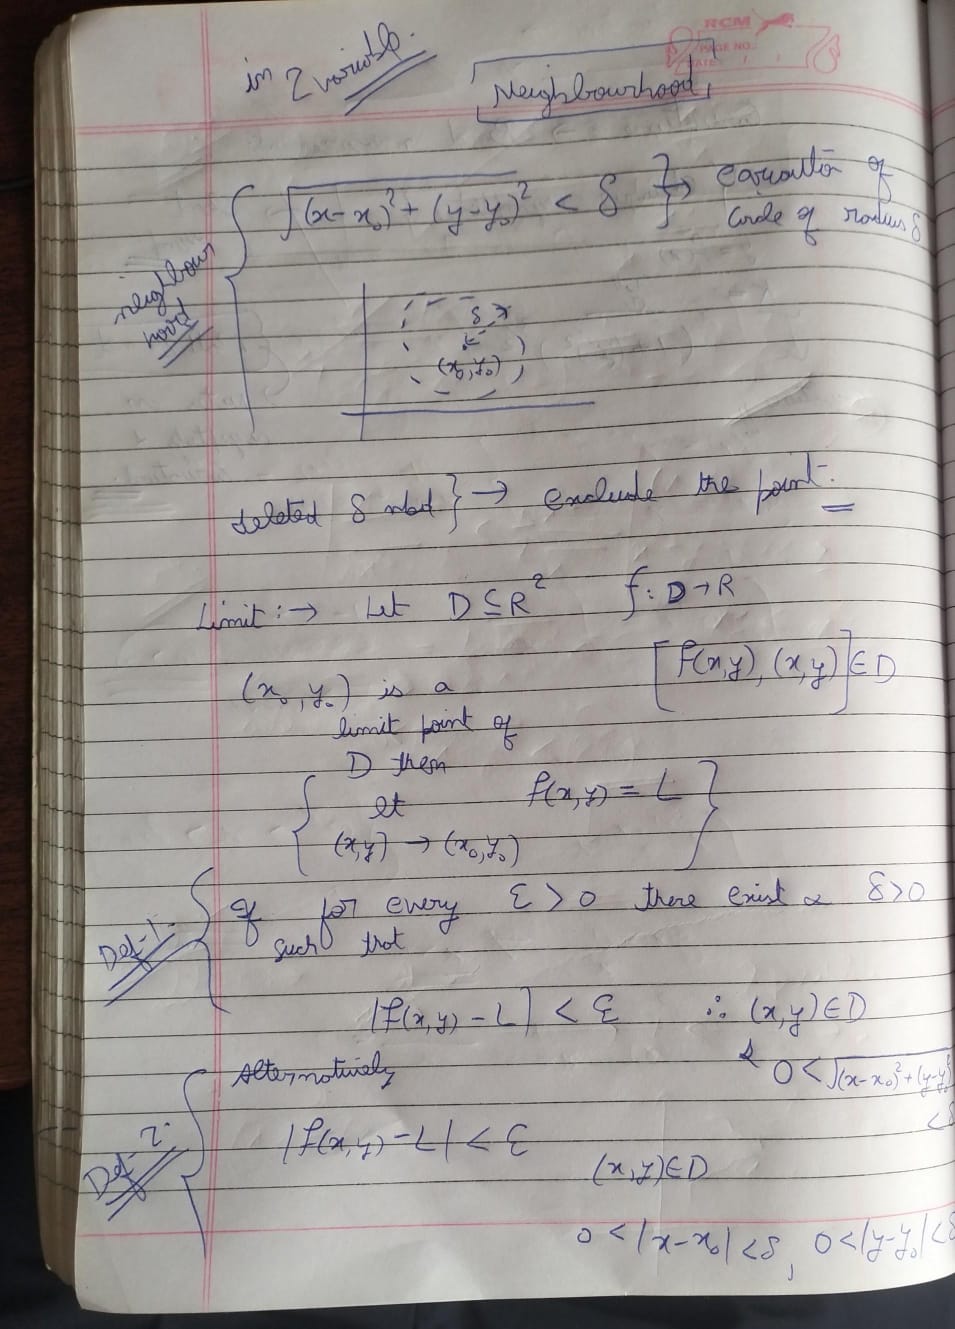 in 2 variable.
Neighbourhood
RCM
PAGE NO.:
DATE: / /
neighbour
hood
√(x-x₀)² + (y-y₀)² < δ } → equation of
circle of radius δ
δ
(x₀, y₀)
deleted δ nbd } → exclude the point.
Limit :→ Let D ⊆ R² f: D → R
[f(x,y), (x,y)] ∈ D
(x₀, y₀) is a
limit point of
D then
lt f(x,y) = L
(x,y) → (x₀,y₀)
Def-1.
If for every ε > 0 there exist a δ>0
such that
|f(x,y) - L| < ε ∴ (x,y) ∈ D
& 0 < √(x-x₀)² + (y-y₀)²
< δ
Def-2.
Alternatively
|f(x,y) - L| < ε
(x,y) ∈ D
0 < |x-x₀| < δ, 0 < |y-y₀| < δ